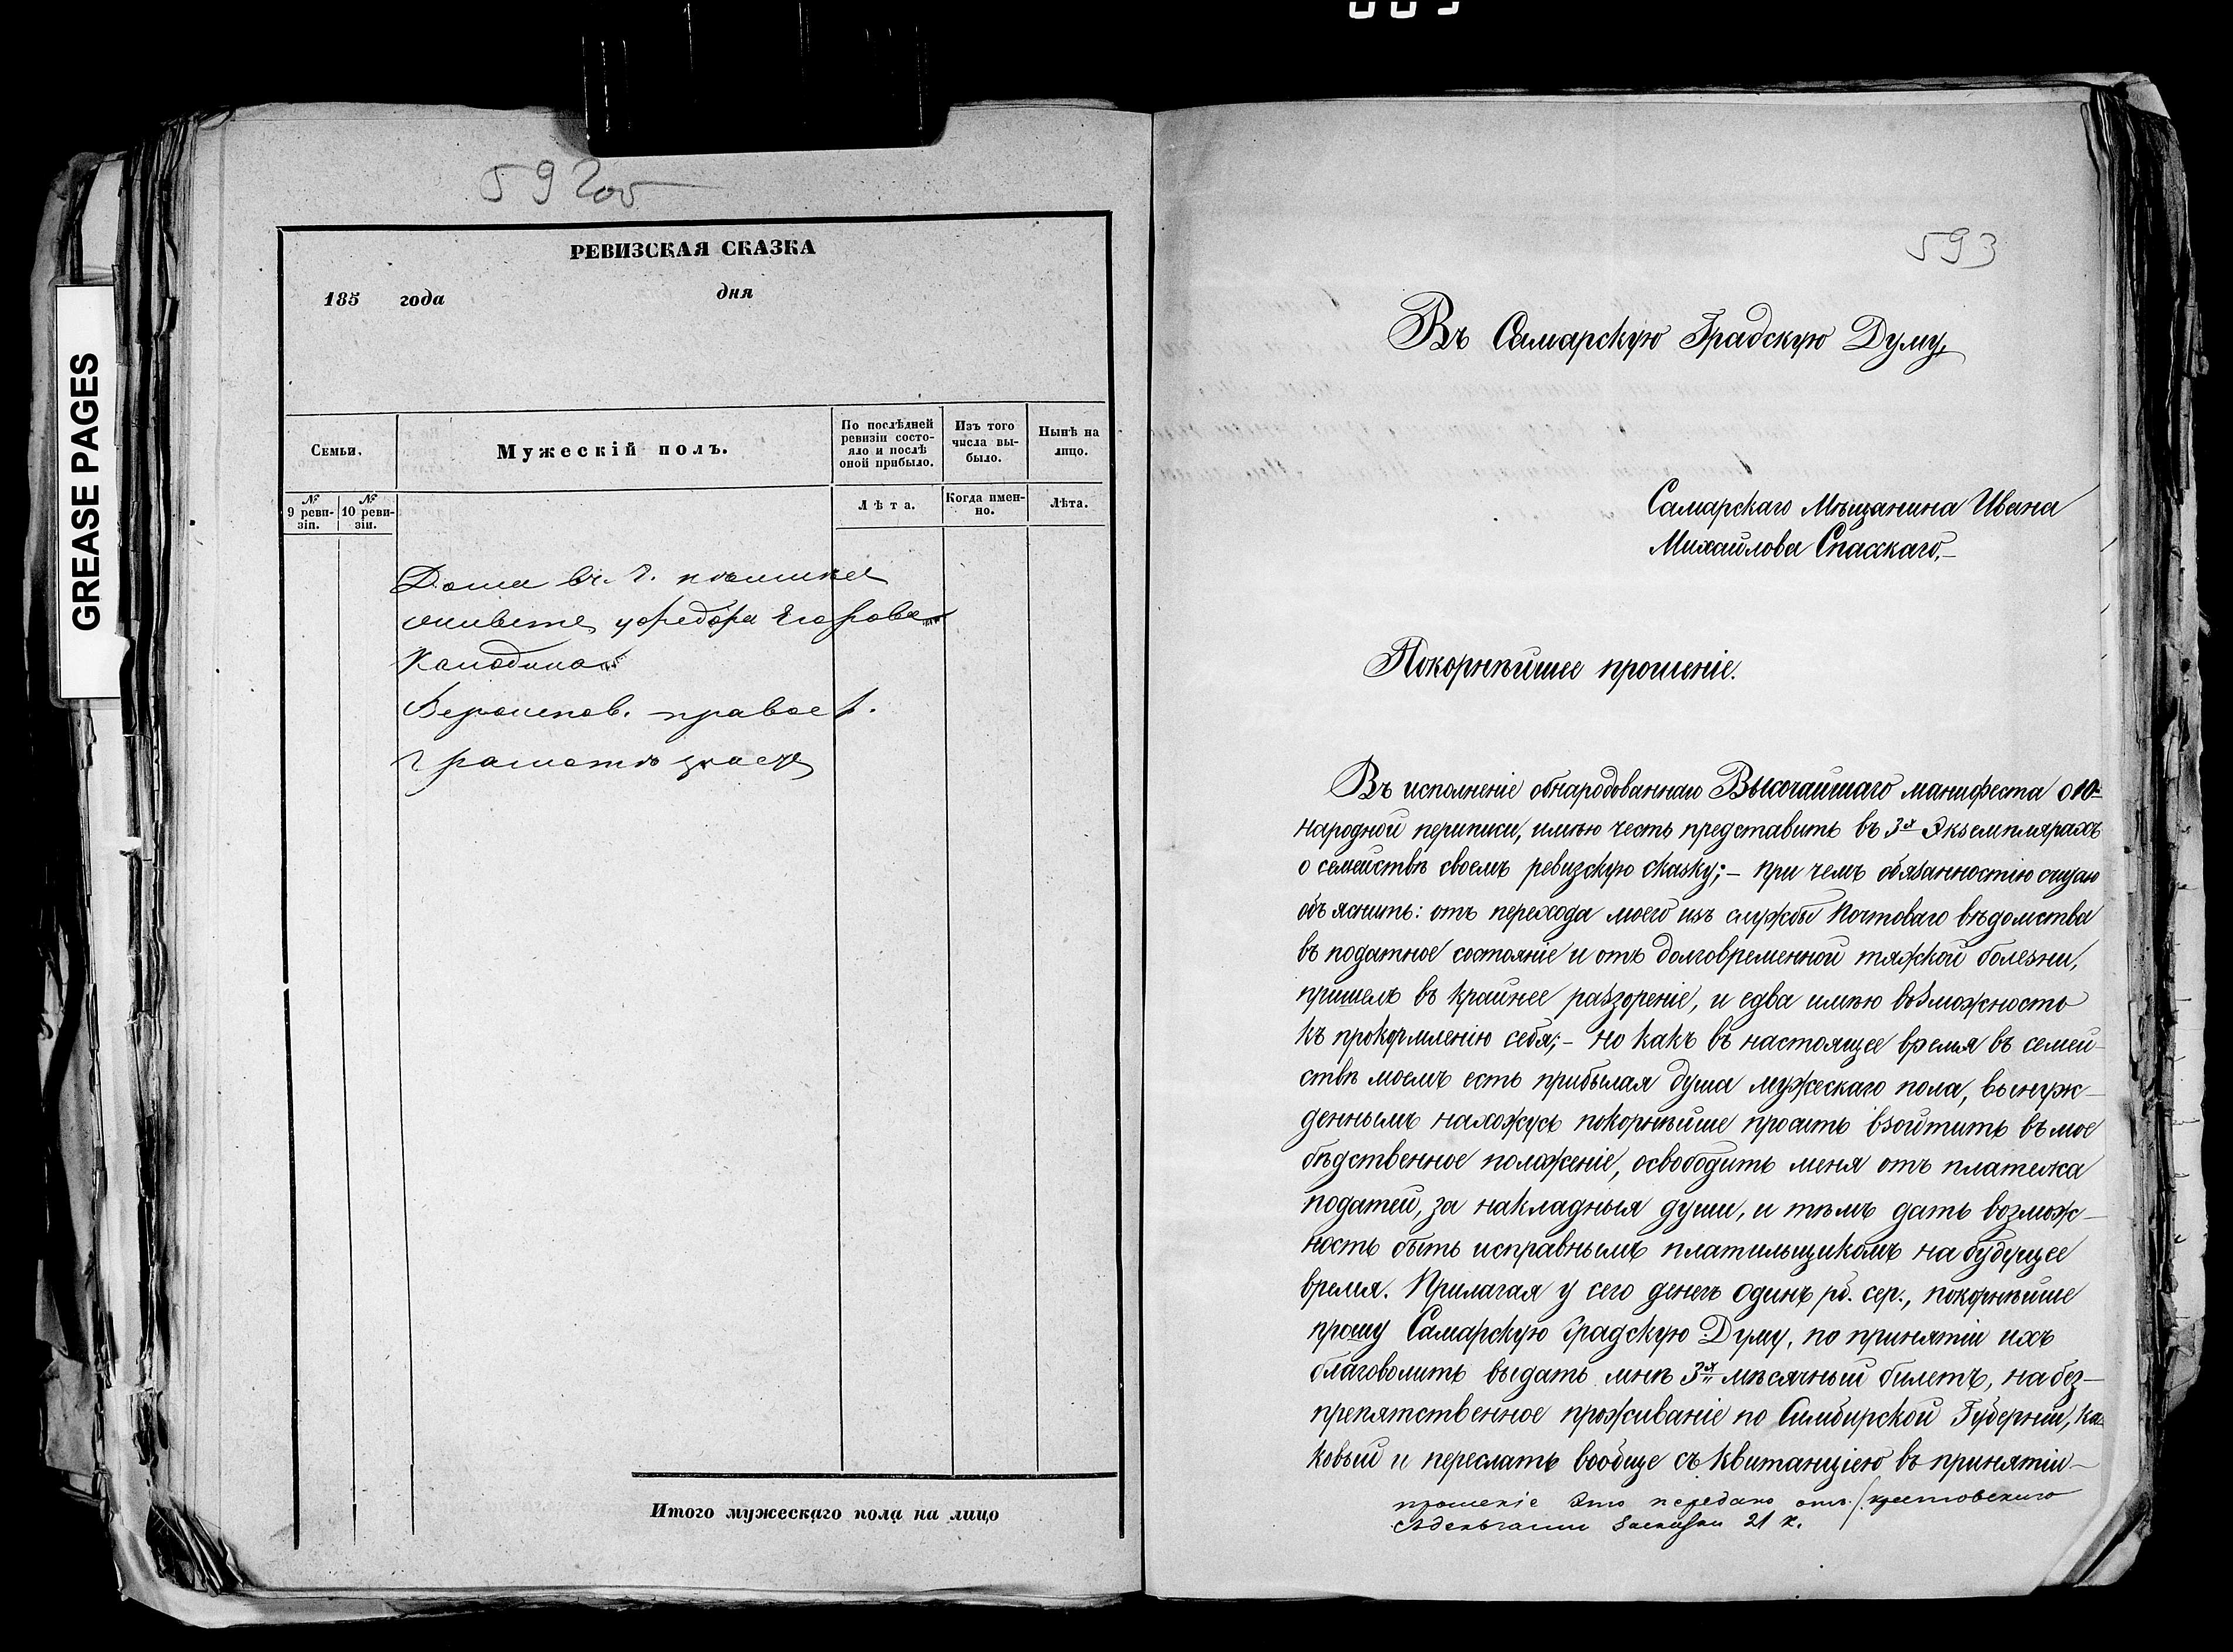 GREASE PAGES
592 об
РЕВИЗСКАЯ СКАЗКА
185 года дня
Семьи.
Мужескій полъ.
По послѣдней ревизіи состо-
яло и послѣ
оной прибыло.
Изъ того
числа вы-
было.
Нынѣ на
лицо.
№
9 реви-
зіи.
№
10 реви-
зіи.
Лѣта.
Когда имен-
но.
Лѣта.
Дома въ г.
у Федора Егорова
правае
грамотѣ знаетъ
Итого мужескаго пола на лицо
593
Въ Самарскую Градскую Думу,
Самарскаго Мѣщанина Ивана
Михайлова Спасскаго,—
Покорнѣйшее прошеніе.
Въ исполненіе обнародованнаго Высочайшаго манифеста о 10-й
народной переписи, имѣю честь представить въ 3х Экземплярахъ
о семействѣ своемъ ревизскую сказку;— при чемъ обязанностію считаю
объяснить: отъ перехода моего изъ службы Почтоваго вѣдомства
въ податное состояніе и отъ долговременной тяжкой болезни,
пришелъ въ крайнее раззореніе, и едва имѣю возможность
къ прокормленію себя;— но какъ въ настоящее время въ семей-
ствѣ моемъ есть прибылая душа мужескаго пола, вынуж-
деннымъ нахожусь покорнѣйше просить взойтить въ мое
бѣдственное положеніе, освободить меня отъ платежа
податей, за накладныя души, и тѣмъ дать возмож-
ность быть исправнымъ платильщикомъ на будущее
время. Прилагая у сего денегъ одинъ рб. сер., покорнѣйше
прошу Самарскую Градскую Думу, по принятіи ихъ
благоволить выдать мнѣ 3х мѣсячный билетъ, на без-
препятственное проживаніе по Симбирской Губерніи, ка-
ковый и переслать вообще съ квитанціею въ принятіи
прошеніе это передано отъ
съ деньгами 21 к.